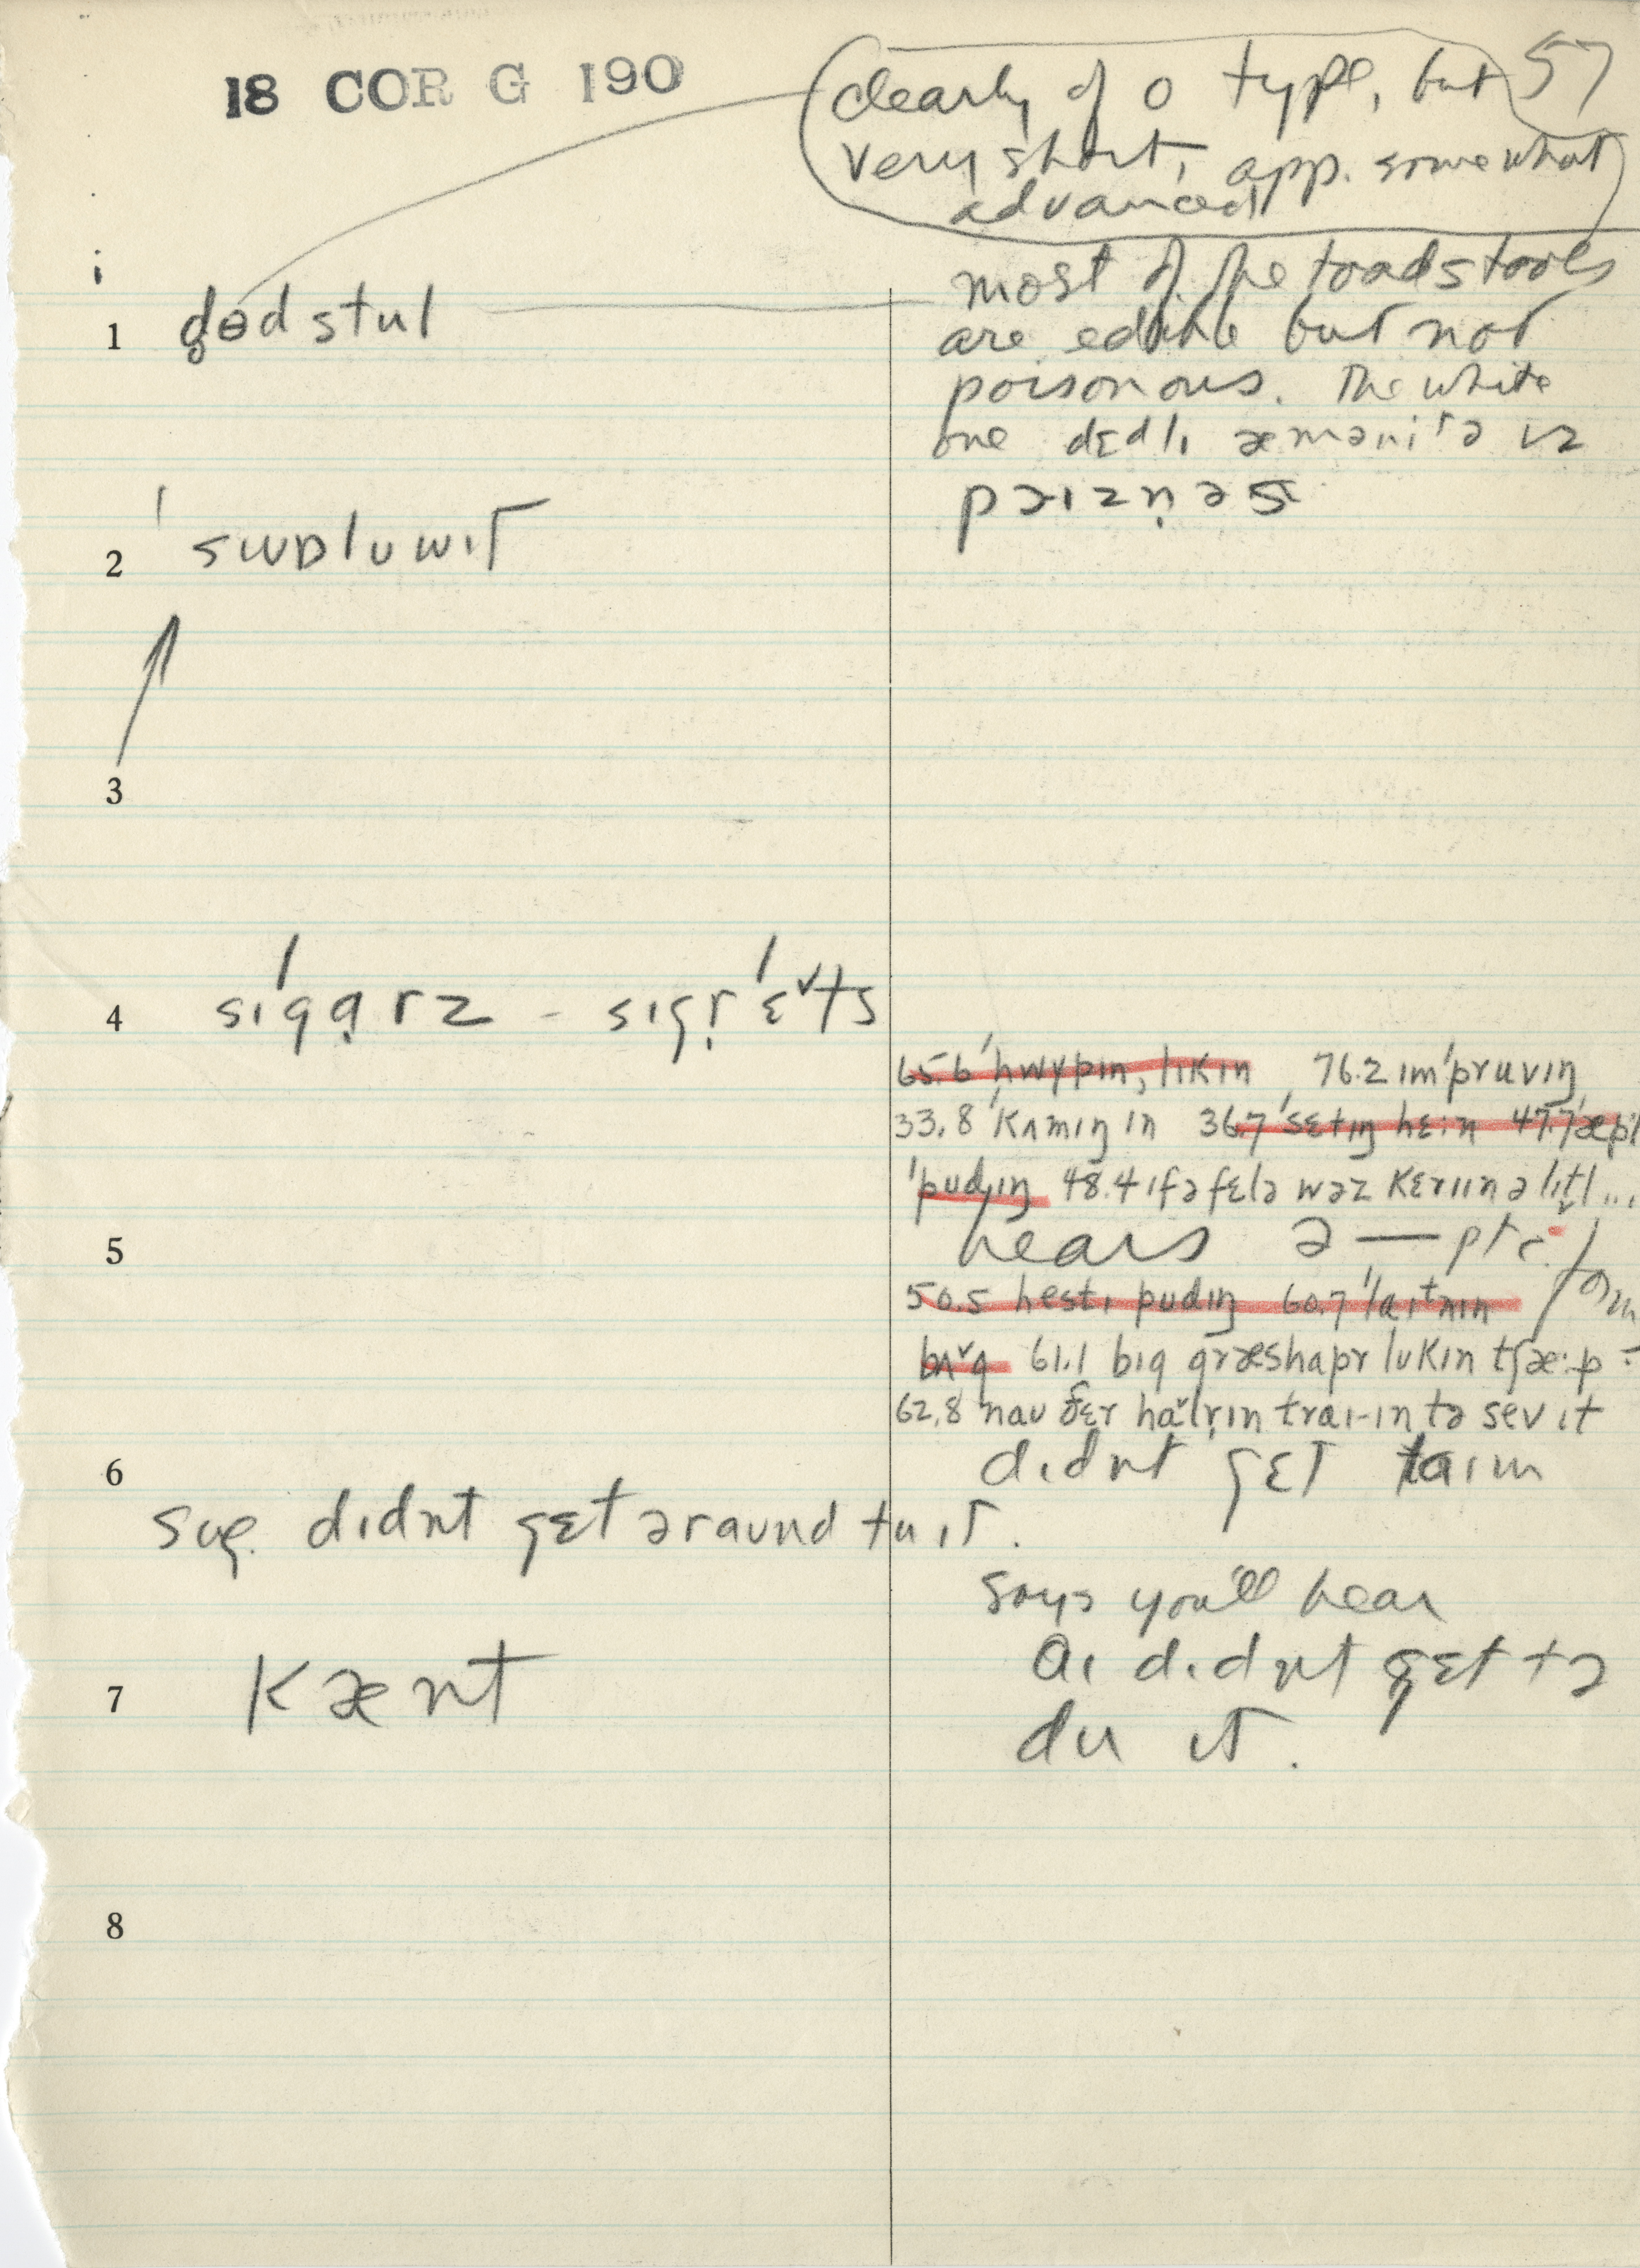 18 COR G 190
57
clearly of o type, but
very short, app. somewhat
advanced
1 d̥ɵd stul
most of the toadstools
are edible but not
poisonous. The white
one dɛdlɪ æmənitə ɪz
pɔɪzn̩əs
2 ˈswɒluwɪt
3
4 ˈsɪgɑ̣rz - sɪgr̩ˈɛˇts
65.6 ˈhwɪpɪn, lɪkɪn 76.2 ɪmˈpruvɪŋ
33.8 ˈkʌmɪŋ ɪn 36.7 ˈsɛtɪŋ hɛɪn 47.7 ˈæpl
ˈpudɪŋ 48.4 ɪf ə fɛlə wəz kɛriɪn ə lɪtl...
5 hears ə — ptc. form
50.5 hestɪ pudɪŋ 60.7 ˈlaɪtnɪn
bʌˇg 61.1 bɪg græshapr lukɪn tʃæ:p
62.8 nau ðɛr haˇlr̩ɪn traɪ-ɪn tə sev ɪt
6 dɪdnt gɛt taɪm
sug. dɪdnt gɛt əraund tu ɪt.
says you'll hear
7 kænt
aɪ dɪdnt gɛt tə
du ɪt.
8